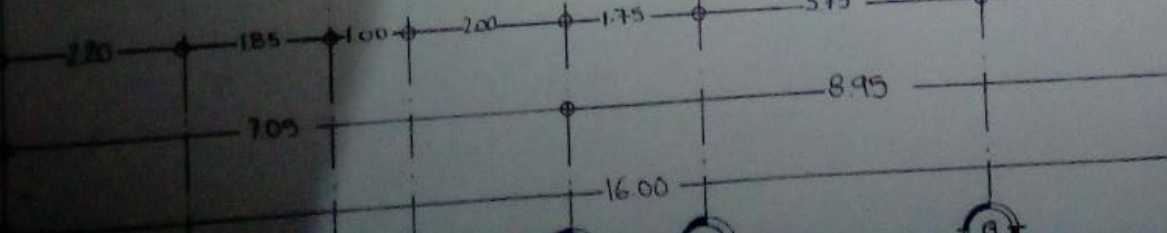 2.20 1.85 1.00 2.00 1.75
7.05 8.95
16.00